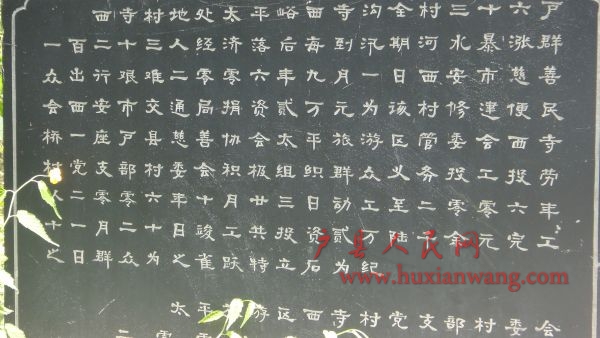 户群善民寺劳丰工会
六涨慈便西投六完委
十暴市建会工零元村
三水安修委投零余部
村河西村管务二十支
全期日该区义至陆党
沟汛一为游众工万纪村
寺到月元旅群动贰为寺
西每九万平织日资石西
峪后年贰太组三投立区
平落六资会极廿共特游
太济零捐协积月工跃
处经零局善会十竣雀平
地人二通慈委年日之太
村三难交县村六十为
寺十艰市户部零二众二
西二行安座支零月群
百出西一党二一日
一众会桥村十之
户县人民网
www.huxianwang.com